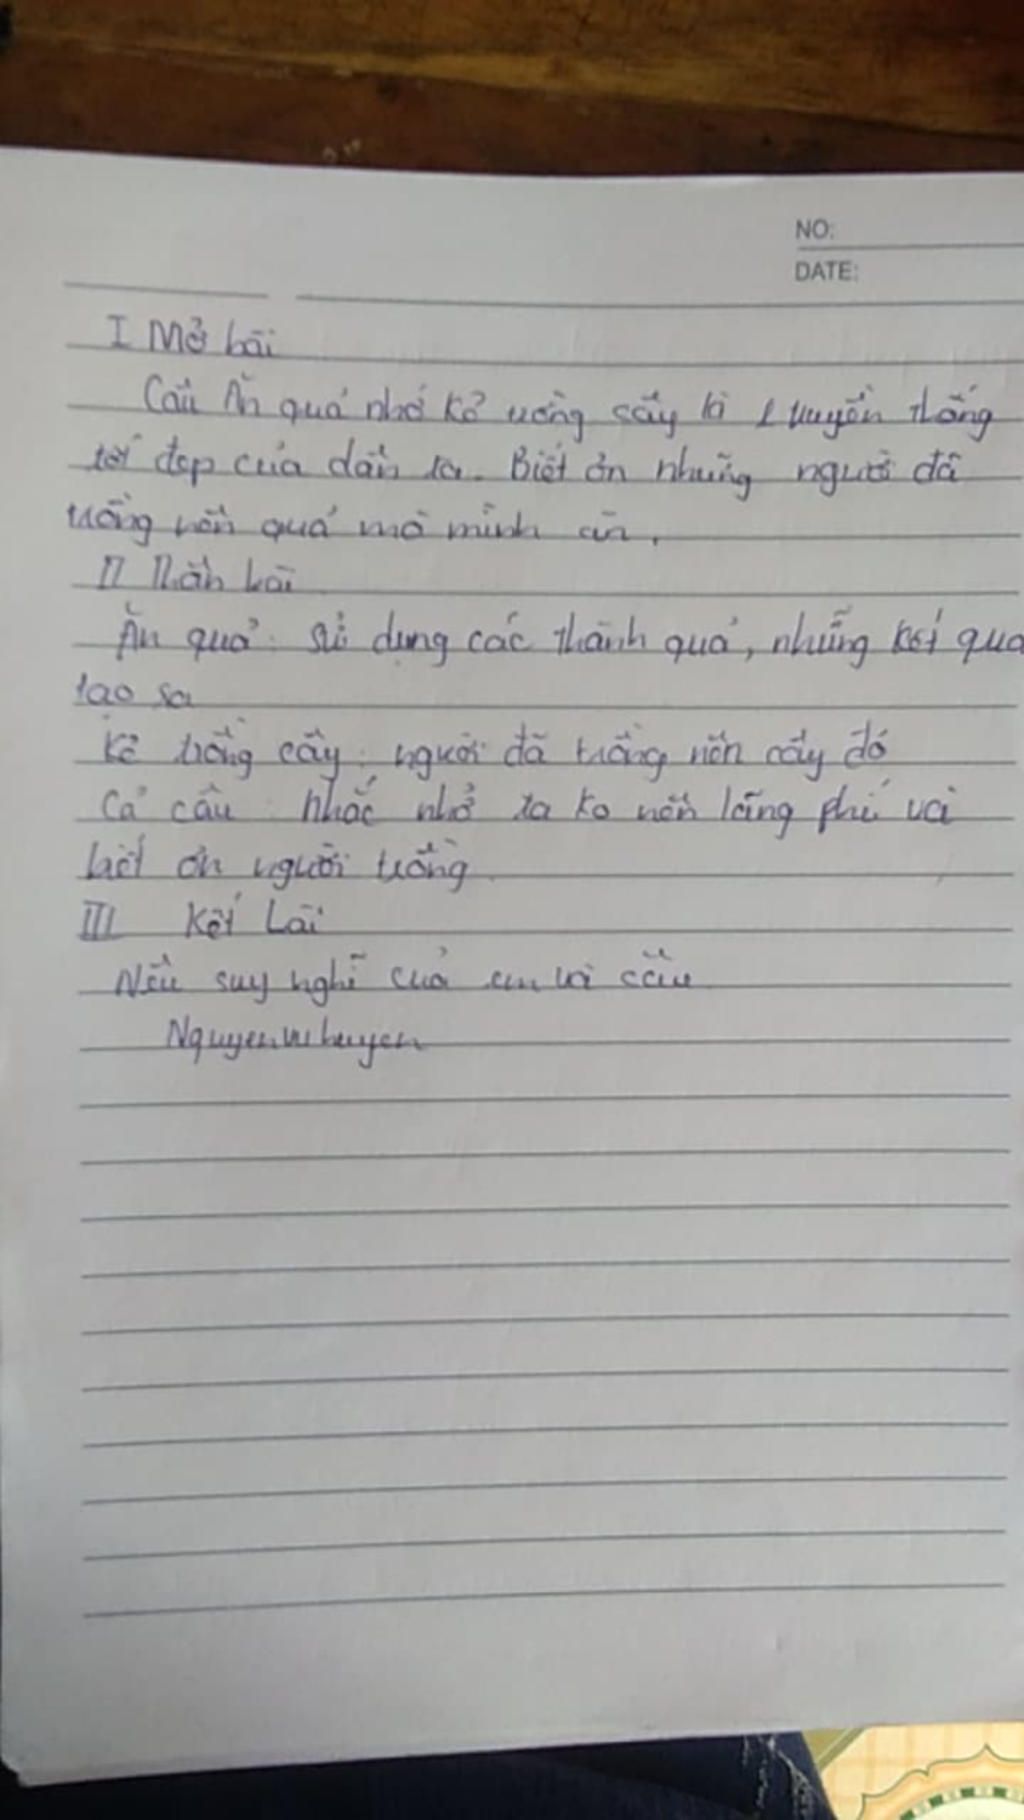 NO:
DATE:
I Mở bài
Câu Ăn quả nhớ kẻ trồng cây là 1 truyền thống
tốt đẹp của dân ta. Biết ơn những người đã
trồng nên quả mà mình ăn.
II Thân bài
Ăn quả: sử dụng các thành quả, những kết quả
tạo sa
Kẻ trồng cây: người đã trồng nên cây đó
Cả câu: nhắc nhở ta ko nên lãng phí và
biết ơn người trồng
III Kết bài
Nêu suy nghĩ của em về câu
Nguyenvuhuyen